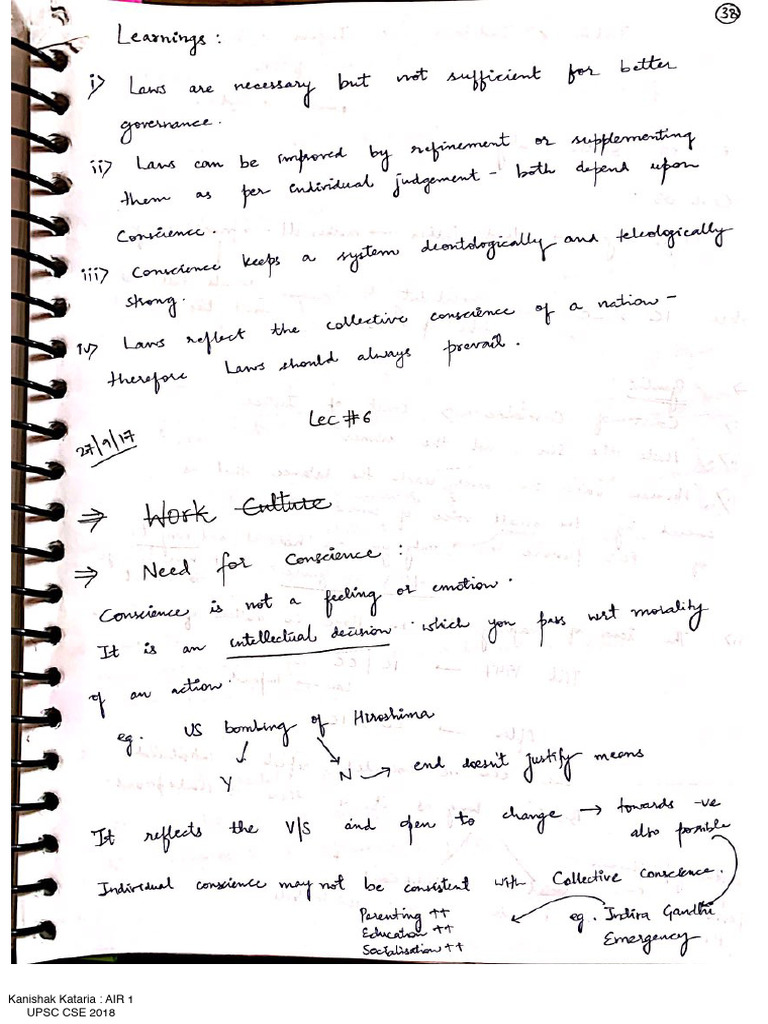 38
Learnings :
i) Laws are necessary but not sufficient for better
governance.
ii) Laws can be improved by refinement or supplementing
them as per individual judgement - both depend upon
Conscience.
iii) Conscience keeps a system deontologically and teleologically
strong.
iv) Laws reflect the collective conscience of a nation -
therefore Laws should always prevail.
Lec # 6
27/9/17
⇒ Work Culture
⇒ Need for Conscience :
Conscience is not a feeling or emotion.
It is an intellectual decision which you pass wrt morality
of an action.
eg. US bombing of Hiroshima
Y N → end doesn't justify means
It reflects the V/S and open to change → towards -ve
also possible
Individual conscience may not be consistent with Collective Conscience.
Parenting ++ eg. Indira Gandhi
Education ++ Emergency
Socialisation ++
Kanishak Kataria : AIR 1
UPSC CSE 2018